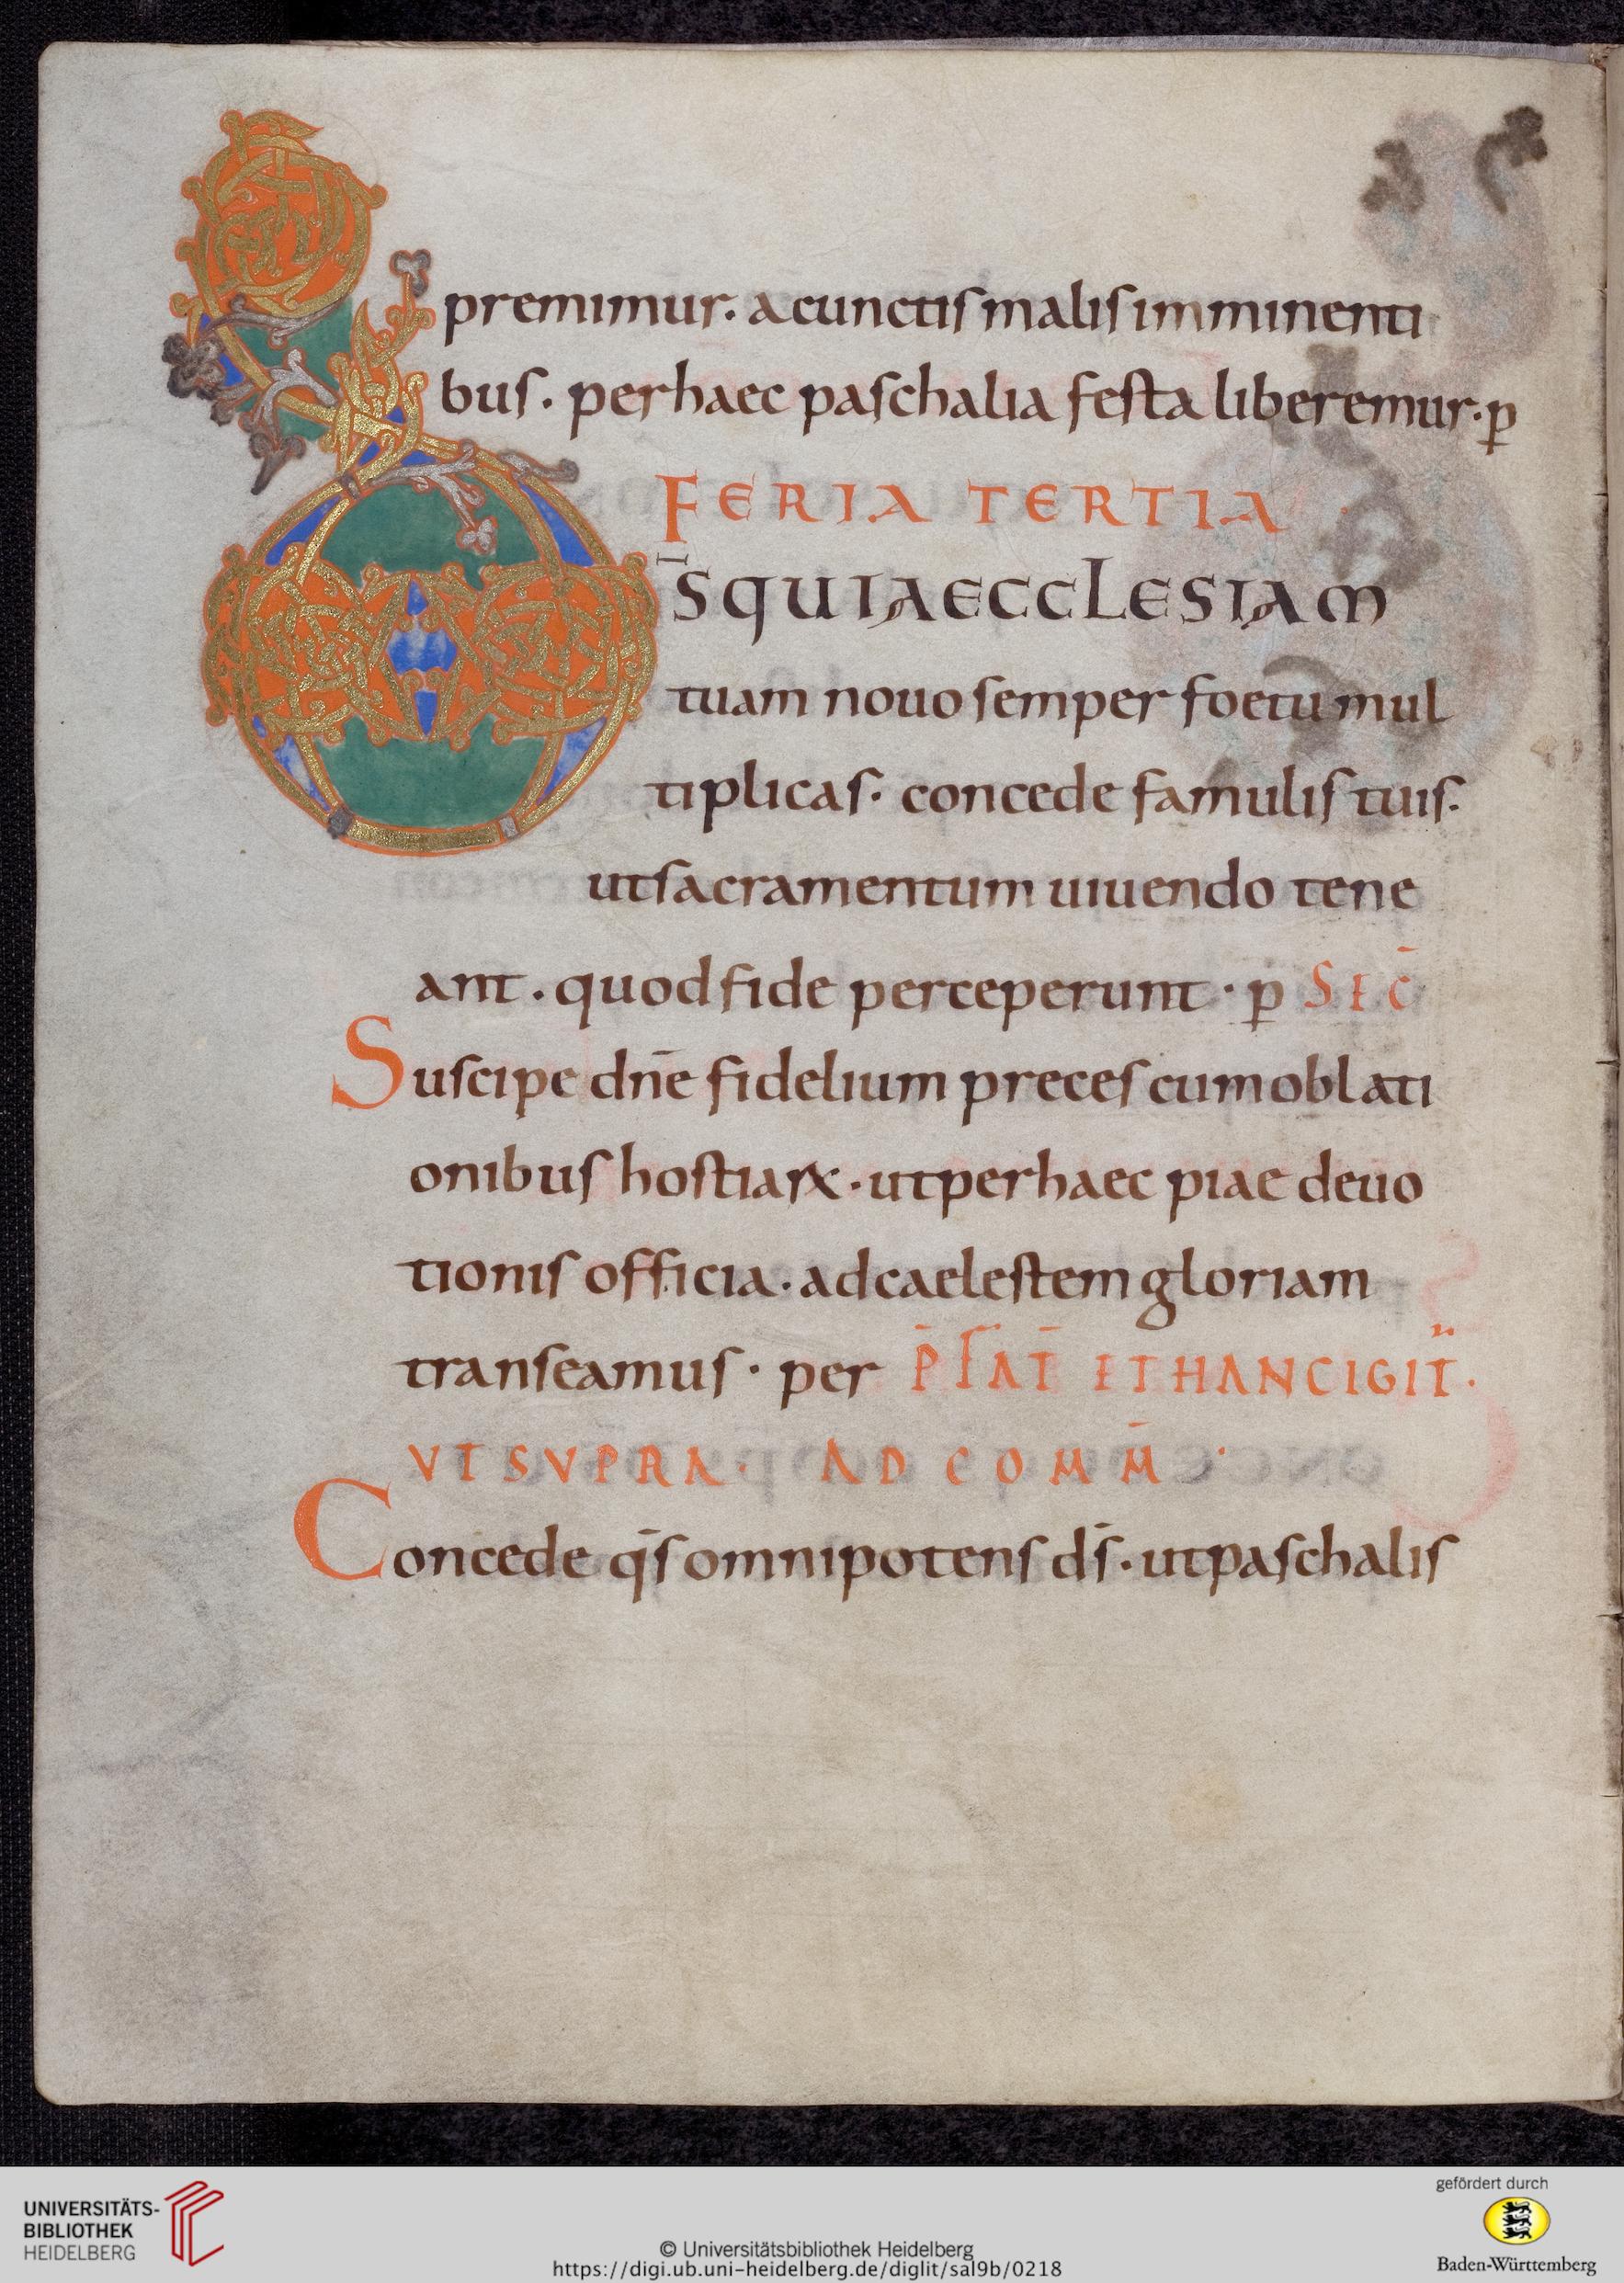 premimur. a cunctis malis imminenti
bus. per haec paschalia festa liberemur. ꝑ
FERIA TERTIA
D̄S QUI AECCLESIAM
tuam nouo semper foetu mul
tiplicas. concede famulis tuis.
ut sacramentum uiuendo tene
ant. quod fide perceperunt. ꝑ SEC̄
Suscipe dn̄e fidelium preces cum oblati
onibus hostiaꝝ. ut per haec piae deuo
tionis officia. ad caelestem gloriam
transeamus. per P̄FAT̄ ET HANC IGIT̄.
UT SUPRA. AD COMM̄.
Concede qs̄ omnipotens ds̄. ut paschalis
UNIVERSITÄTS-
BIBLIOTHEK
HEIDELBERG
© Universitätsbibliothek Heidelberg
https://digi.ub.uni-heidelberg.de/diglit/sal9b/0218
gefördert durch
Baden-Württemberg